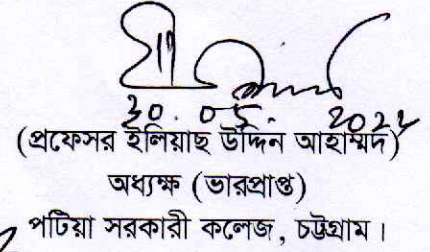 30.05.2022
(প্রফেসর ইলিয়াছ উদ্দিন আহাম্মদ)
অধ্যক্ষ (ভারপ্রাপ্ত)
পটিয়া সরকারী কলেজ, চট্টগ্রাম।